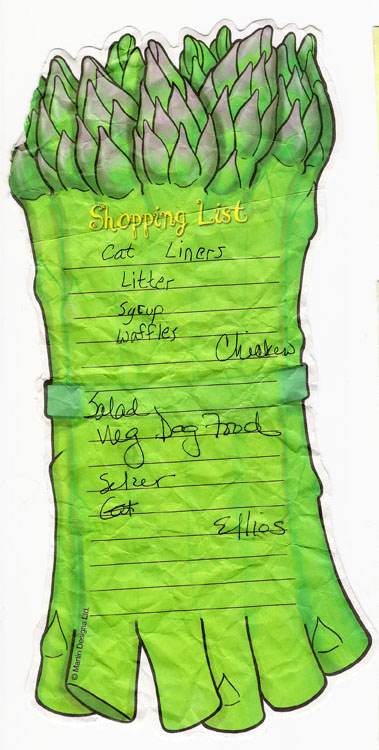 Shopping List
Cat Liners
Litter
Syrup
Waffles
Chicken
Salad
Veg Dog Food
Selzer
Cat
Ellios
© Martin Designs Ltd.